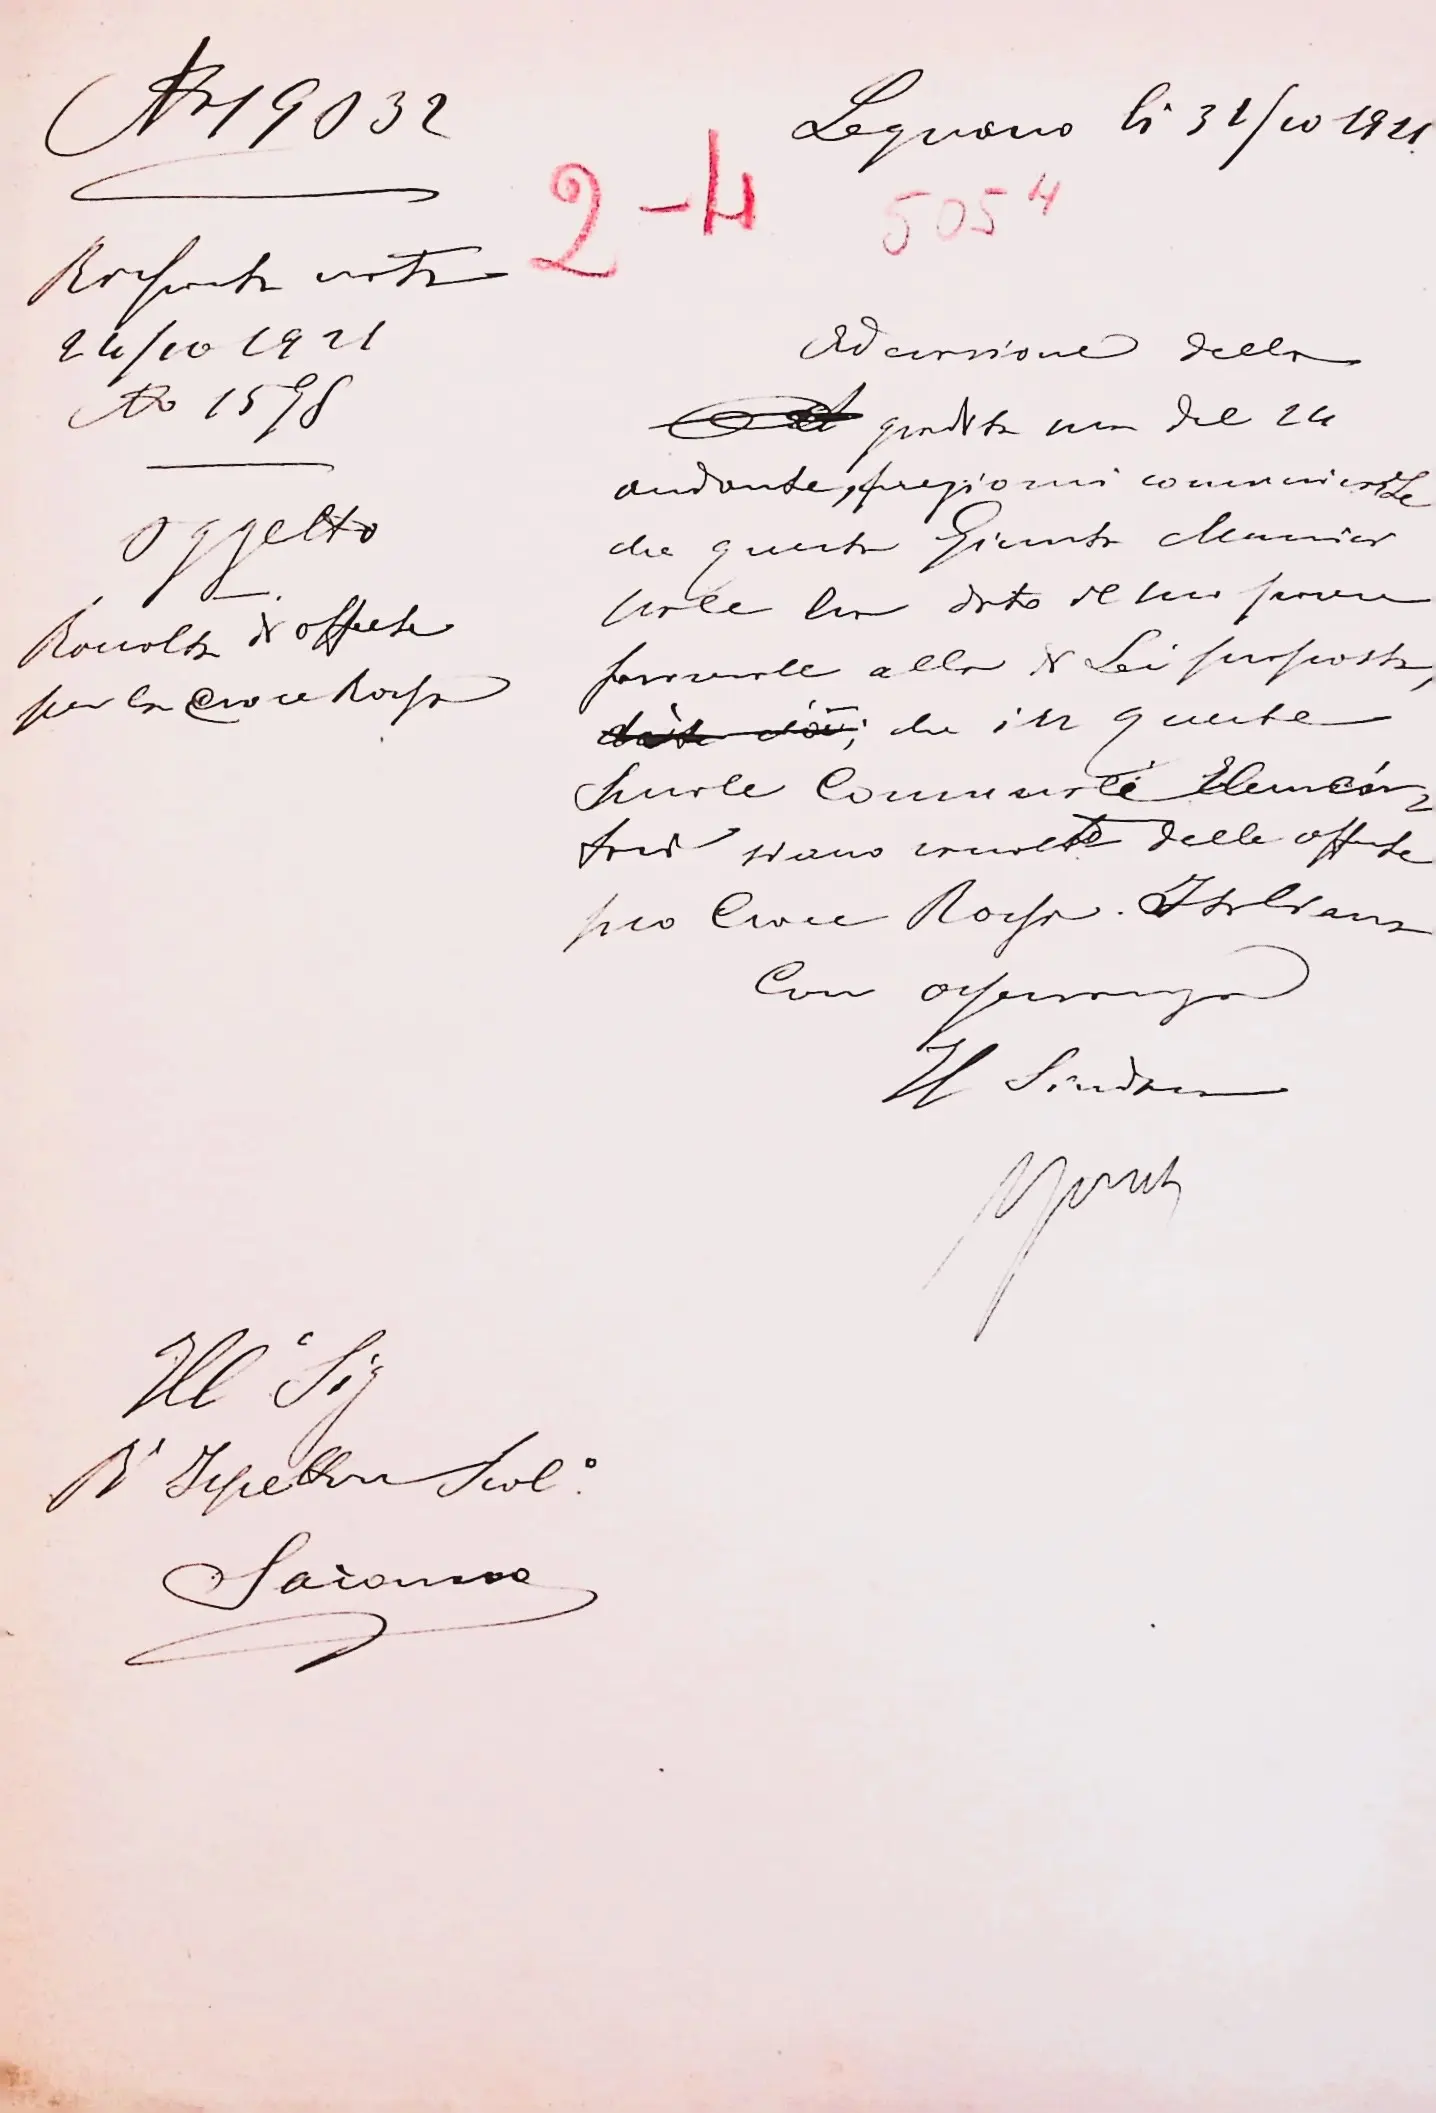 No 19032
Legnano li 31/10 1921
2-4
5054
Risposta nota
24/10 1921
No 1598
Oggetto
Raccolta di offerte
per la Croce Rossa
Ad evasione della
gradita sua del 24
andante, pregiomi comunicarLe
che questa Giunta Munici
pale ha dato il suo parere
favorevole alla di Lei proposta,
che in queste
Scuole Comunali Elemen
siano raccolte delle offerte
pro Croce Rossa Italiana
Con osservanza
Il Sindaco
Ill° Sig
R° Ispettore Scol°
Saronno